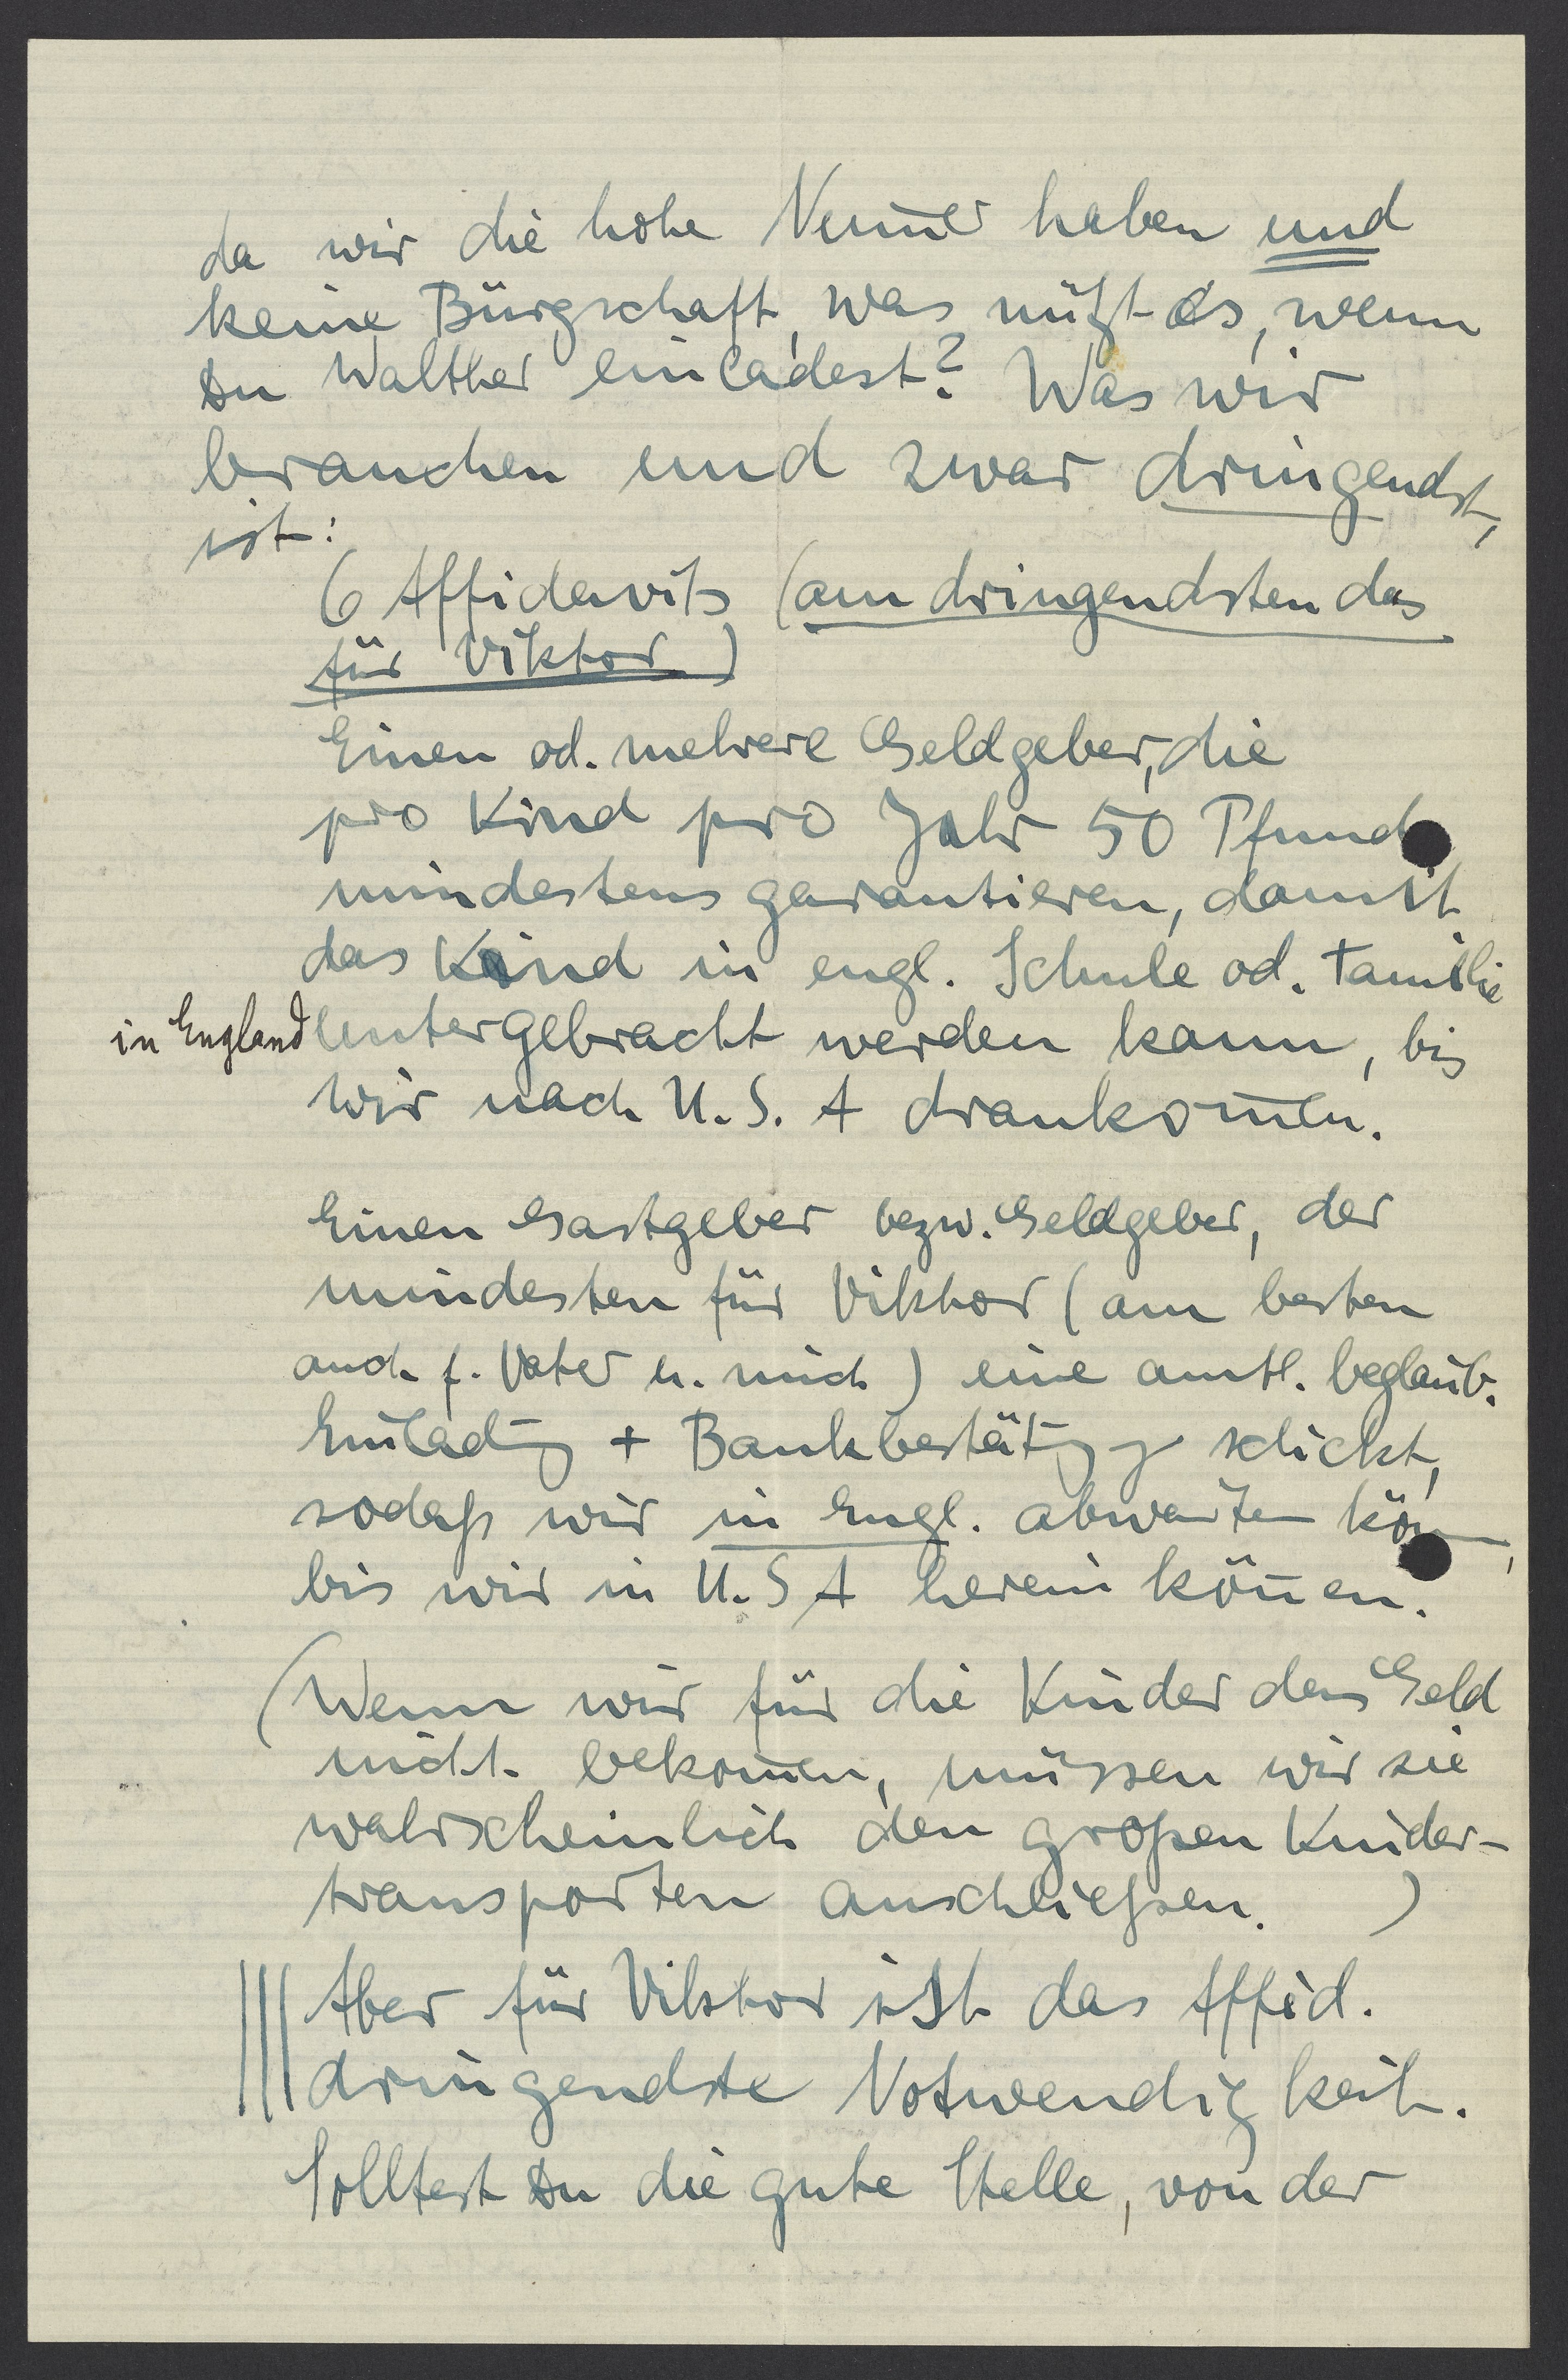 da wir die hohe Num̅er haben und
keine Bürgschaft, was nützt es, wenn
Du Walther einladest? Was wir
brauchen und zwar dringendst,
ist:
6 Affidavits (am dringendsten das
für Viktor)
Einen od. mehrere Geldgeber, die
pro Kind pro Jahr 50 Pfund
mindestens garantieren, damit
das Kind in engl. Schule od. Familie
in England untergebracht werden kann, bis
wir nach U.S.A drankom̅en.
Einen Gastgeber bezw. Geldgeber, der
mindesten für Viktor (am besten
auch f. Vater u. mich) eine amtl. beglaub.
Einladg + Bankbestätigg schickt,
sodaß wir in Engl. abwarten kön,
bis wir in U.S A herein kön̅en.
(Wenn wir für die Kinder das Geld
nicht bekom̅en, müssen wir sie
wahrscheinlich den großen Kinder-
transporten anschließen.)
Aber für Viktor ist das Affid.
dringendste Notwendigkeit.
Solltest Du die gute Stelle, von der